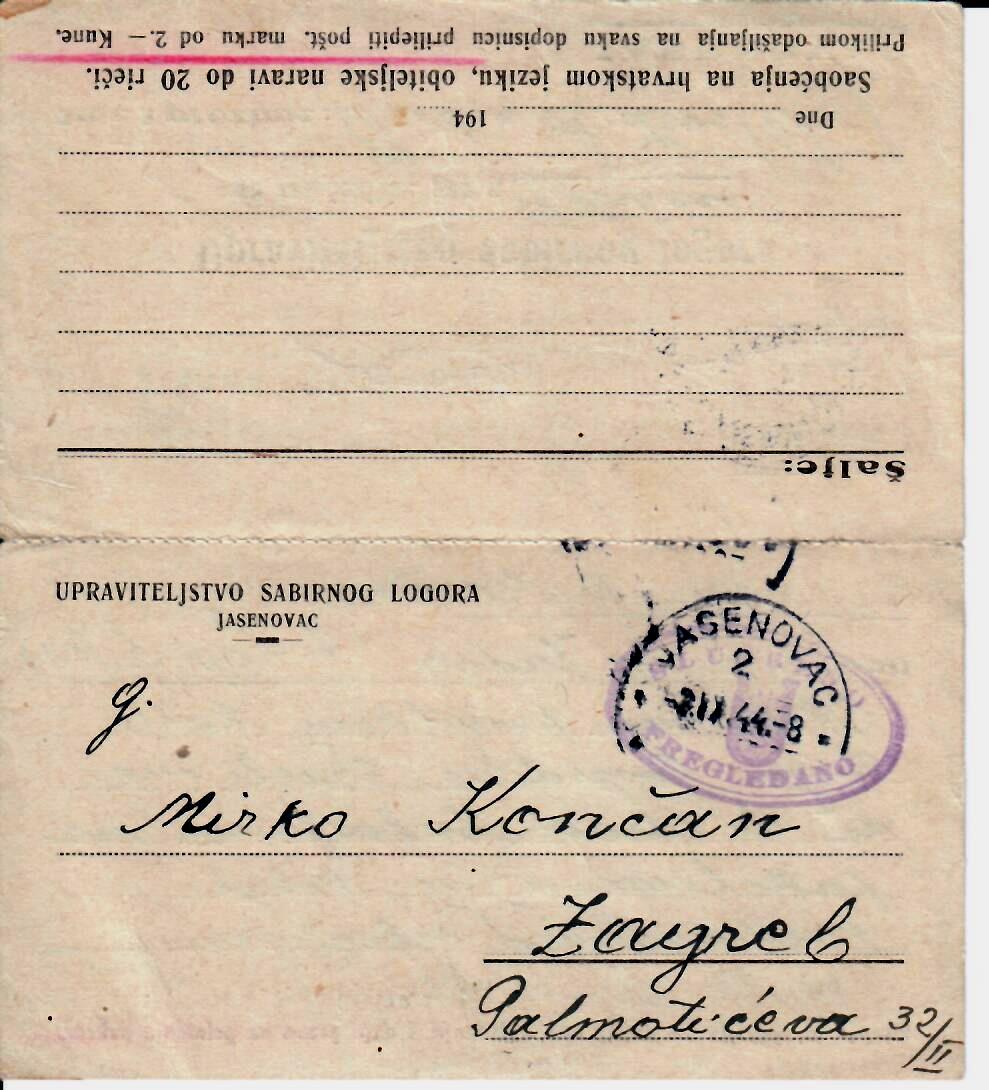 Prilikom odašiljanja na svaku dopisnicu prilijepiti pošt. marku od 2.— Kune.
Saobćenja na hrvatskom jeziku, obiteljske naravi do 20 rieči.
Dne 194
Šalje:
UPRAVITELJSTVO SABIRNOG LOGORA
JASENOVAC
JASENOVAC
2
44.-8
PREGLEDANO
g.
Mirko Končan
Zagreb
Palmotićeva 32/II